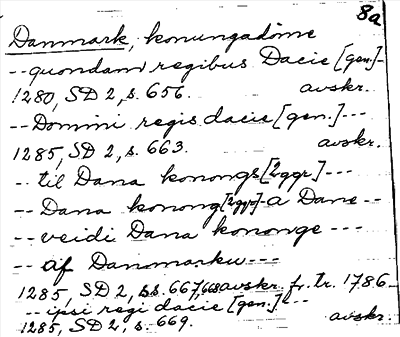 8a
Danmark, konungadöme
-- quondam regibus Dacie [gen.] -
1280, SD 2, s. 656. avskr.
-- Domini regis dacie [gen.] ---
1285, SD 2, s. 663. avskr.
-- til Dana konongs [2ggr.] ---
-- Dana konong [2ggr] - a Dane --
-- veidi Dana kononge ---
-- af Danmarku ---
1285, SD 2, ss. 667, 668 avskr. fr. tr. 1786 -
-- ipsi regi dacie [gen.] ---
1285, SD 2, s. 669. avskr.